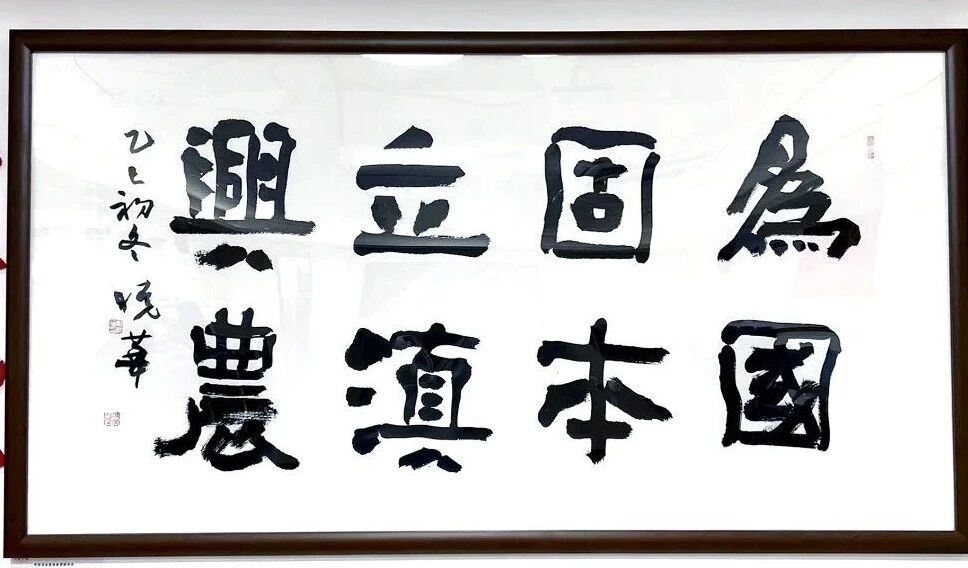 為國
固本
立滇
興農
乙巳初冬
曉華